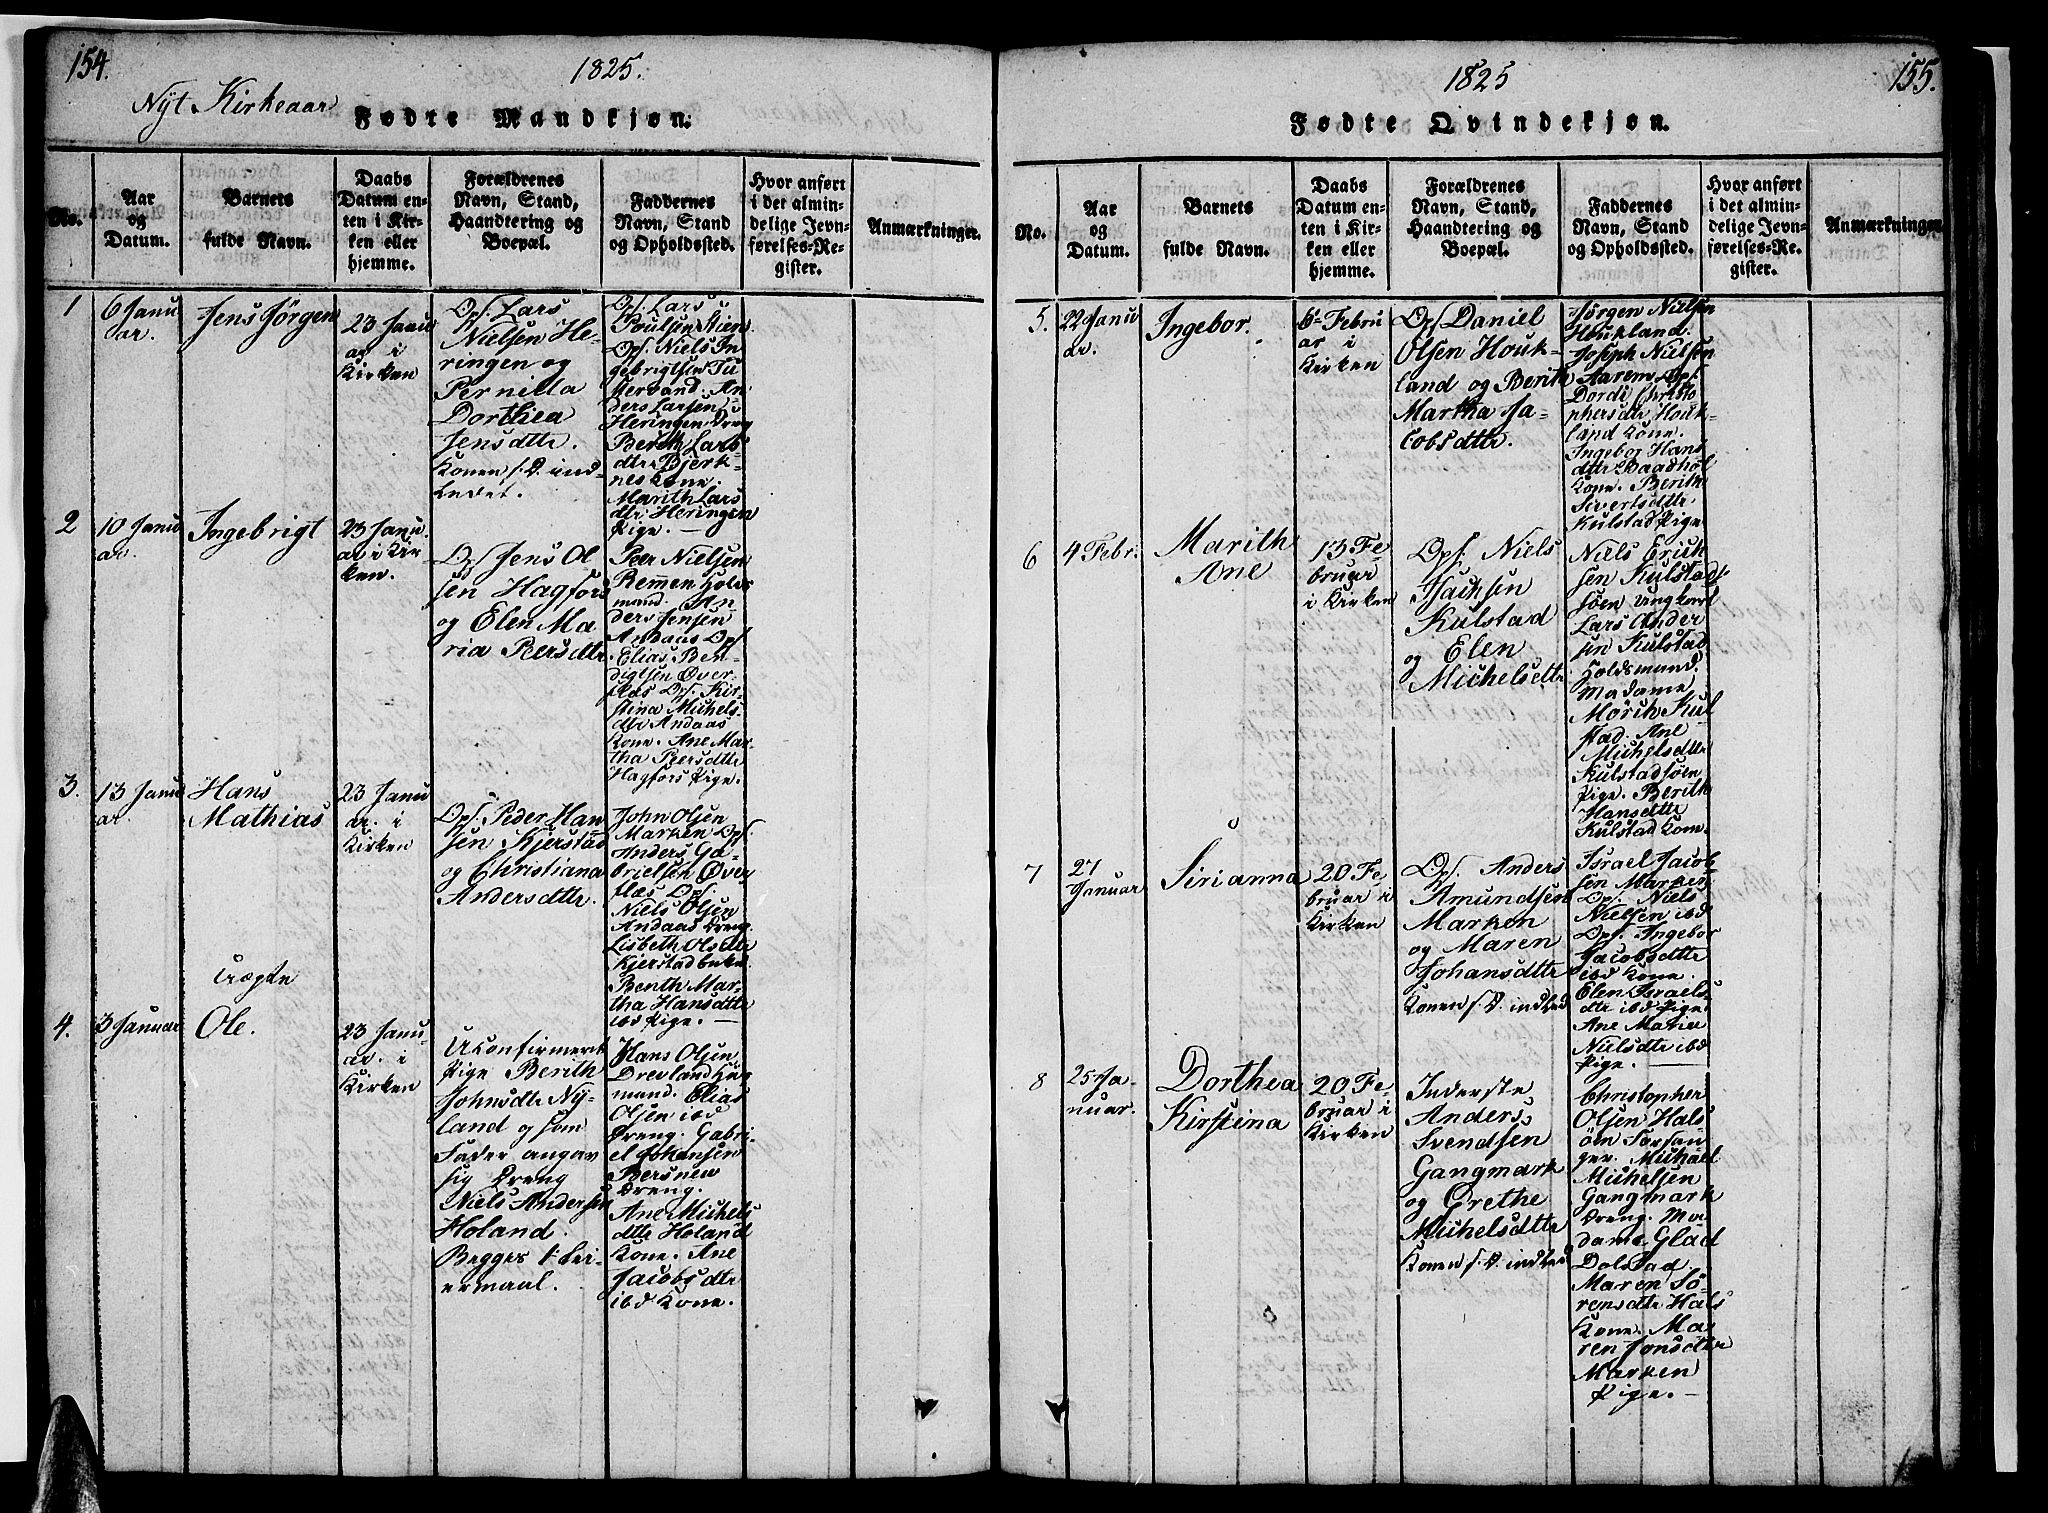 154.
1825.
Nÿt Kirkeaar
Fødte Mandkjøn.
No.
Aar
og
Datum.
Barnets
fulde Navn.
Daabs
Datum en-
ten i Kir-
ken eller
hjemme.
Forældrenes
Navn, Stand,
Haandtering og
Boepæl.
Faddernes
Navn, Stand
og Opholdssted.
Hvor anført
i det almin-
delige Jevn-
førelses-Re-
gister.
Anmærkninger.
1
6 Janu
ar.
Jens Jörgen
23 Janu
ar i
Kirken
Ops. Lars
Nielsen He-
ringen og
Pernilla
Dorthea
Jensdttr.
Konen s. D. ind-
ledet.
Ops. Lars
Poulsen Stien
Ops. Niels In
gebrigtsen Tu
stervand. An
ders Larsen
Heringen Dreng
Berith Lars
dttr Bjerk-
nes Kone.
Marith Lars
dttr Heringen
Pige. —
2
10 Janu
ar.
Ingebrigt
23 Janu.
ar i Kir
ken.
Ops Jens Ol
sen Hagfors
og Elen Ma
ria Persdttr
Peer Nielsen
Remmen Holds
mand. An
ders Jensen
Andaas Ops
Elias Ben-
digtsen Över
flæs Ops. Kir
stina Michels
dttr Andaas
Kone. Ane Mar-
tha Persdttr
Hagfors Pige.
3.
13 Janu
ar.
Hans
Mathias
23 Janu
ar. i
Kirken
Ops. Peder Han
sen Kjerstad
og Christiana
Andersdttr.
John Olsen
Marken Ops.
Anders Ga-
brielsen Över
flæs Ops.
Niels Olsen
Andaas Dreng.
Lisbeth Olsdttr
Kjerstad
Berith Mar-
tha Hansdttr
ibd Pige. —
4.
3 Januar
Uægte
Ole.
23 Janu
ar. i
Kirken
Ukonfirmert
Pige Berith
Johnsdttr Ny-
land og som
Fader angav
sig Dreng
Niels Andersen
Holand.
Begges 1te Lei-
ermaal.
Hans Olsen
Drevland Huus
mand. Elias
Olsen ibd
Dreng. Gabri-
el Johansen
Bersnew
Dreng.
Ane Michels
dttr Holand
Kone. Ane
Jacobsdttr
ibd Kone.
1825
155.
Fødte Qvindekjøn.
No.
Aar
og
Datum.
Barnets
fulde Navn.
Daabs
Datum en-
ten i Kir-
ken eller
hjemme.
Forældrenes
Navn, Stand,
Haandtering og
Boepæl.
Faddernes
Navn, Stand
og Opholdssted.
Hvor anført
i det almin-
delige Jevn-
førelses-Re-
gister.
Anmærkninger
5.
22 Janu
ar.
Ingebor.
6te Febru
ar i
Kirken
Ops Daniel
Olsen Houk-
land og Berith
Martha Ja-
cobsdttr.
Jörgen Nielsen
Houkland.
Joseph Nielsen
Aarem Ops.
Dordi Christo
phersdttr Houk-
land Kone.
Ingebor Hans
dttr Baadhol
Kone. Berith
Sivertsdttr
Kulstad Pige
6
4 Febr.
Marith
Ane
13 Fe
bruar
i Kirken
Ops. Niels
Isachsen
Kulstad
og Elen
Michelsdttr
Niels Erich
sen Kulstads-
söen Ungkarl
Lars Ander
sen Kulstad
Holdsmand.
Madame
Mörch Kul
stad. Ane
Michelsdttr
Kulstadsöen
Pige. Berith
Hansdttr
Kulstad Kone.
7
27
Januar
Sirianna
20 Fe
bruar i
Kirken
Ops. Anders
Amundsen
Marken
og Maren
Johansdttr
Konen s. D. indled
Israel Jacob
sen Marken
Ops. Niels
Nielsen ibd
Ops. Ingebor
Jacobsdttr
ibd Kone.
Elen Israels
dttr ibd Pige.
Ane Maria
Nielsdttr ibd
Pige. —
8
25 Ja-
nuar.
Dorthea
Kirstina
20 Fe
bruar i
Kirken
Inderste
Anders
Svendsen
Gangmark
og Grethe
Michelsdttr
Konen s. D. indled
Christopher
Olsen Hals
öen
Michael
Michelsen
Gangmark
Dreng. Ma
dame Glad
Dolstad.
Maren Sö-
rensdttr Hals
Kone. Ma-
ren Jonsdttr
Marken
Pige. —